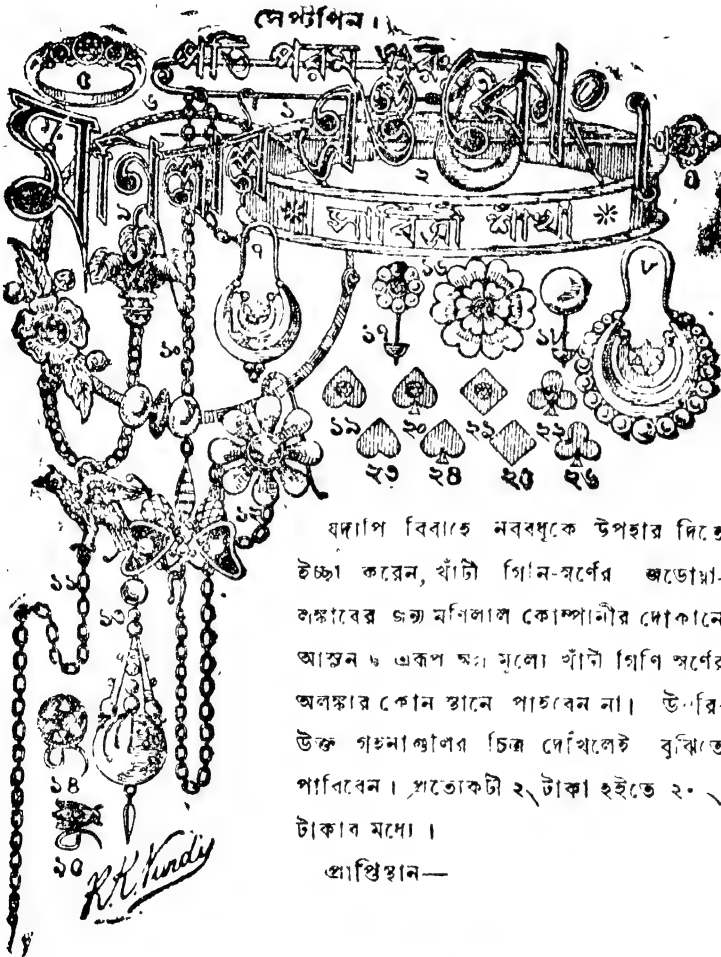 সেপ্টপিন।
পতি পরম গুরু
মণিলাল এণ্ড কোং
* সাবিত্রী শাঁখা *
৫
৬
১
৪
২
৯
৭
৮
১৬
১৭
১৮
১০
১৯ ২০ ২১ ২২
২৩ ২৪ ২৫ ২৬
১২
১১
১৩
১৪
১৫
R.K. Nundy
যদ্যপি বিবাহে নববধূকে উপহার দিতে
ইচ্ছা করেন, খাঁটী গিনি-স্বর্ণের জডোয়া-
লঙ্কাবের জন্য মণিলাল কোম্পানীর দোকানে
আসুন। এরূপ অল্প মূল্যে খাঁটী গিণি স্বর্ণের
অলঙ্কার কোন স্থানে পাইবেন না। উপরি-
উক্ত গহনাগুলির চিত্র দেখিলেই বুঝিতে
পারিবেন। প্রত্যেকটী ২৲ টাকা হইতে ২০৲
টাকাব মধ্যে।
প্রাপ্তিস্থান—